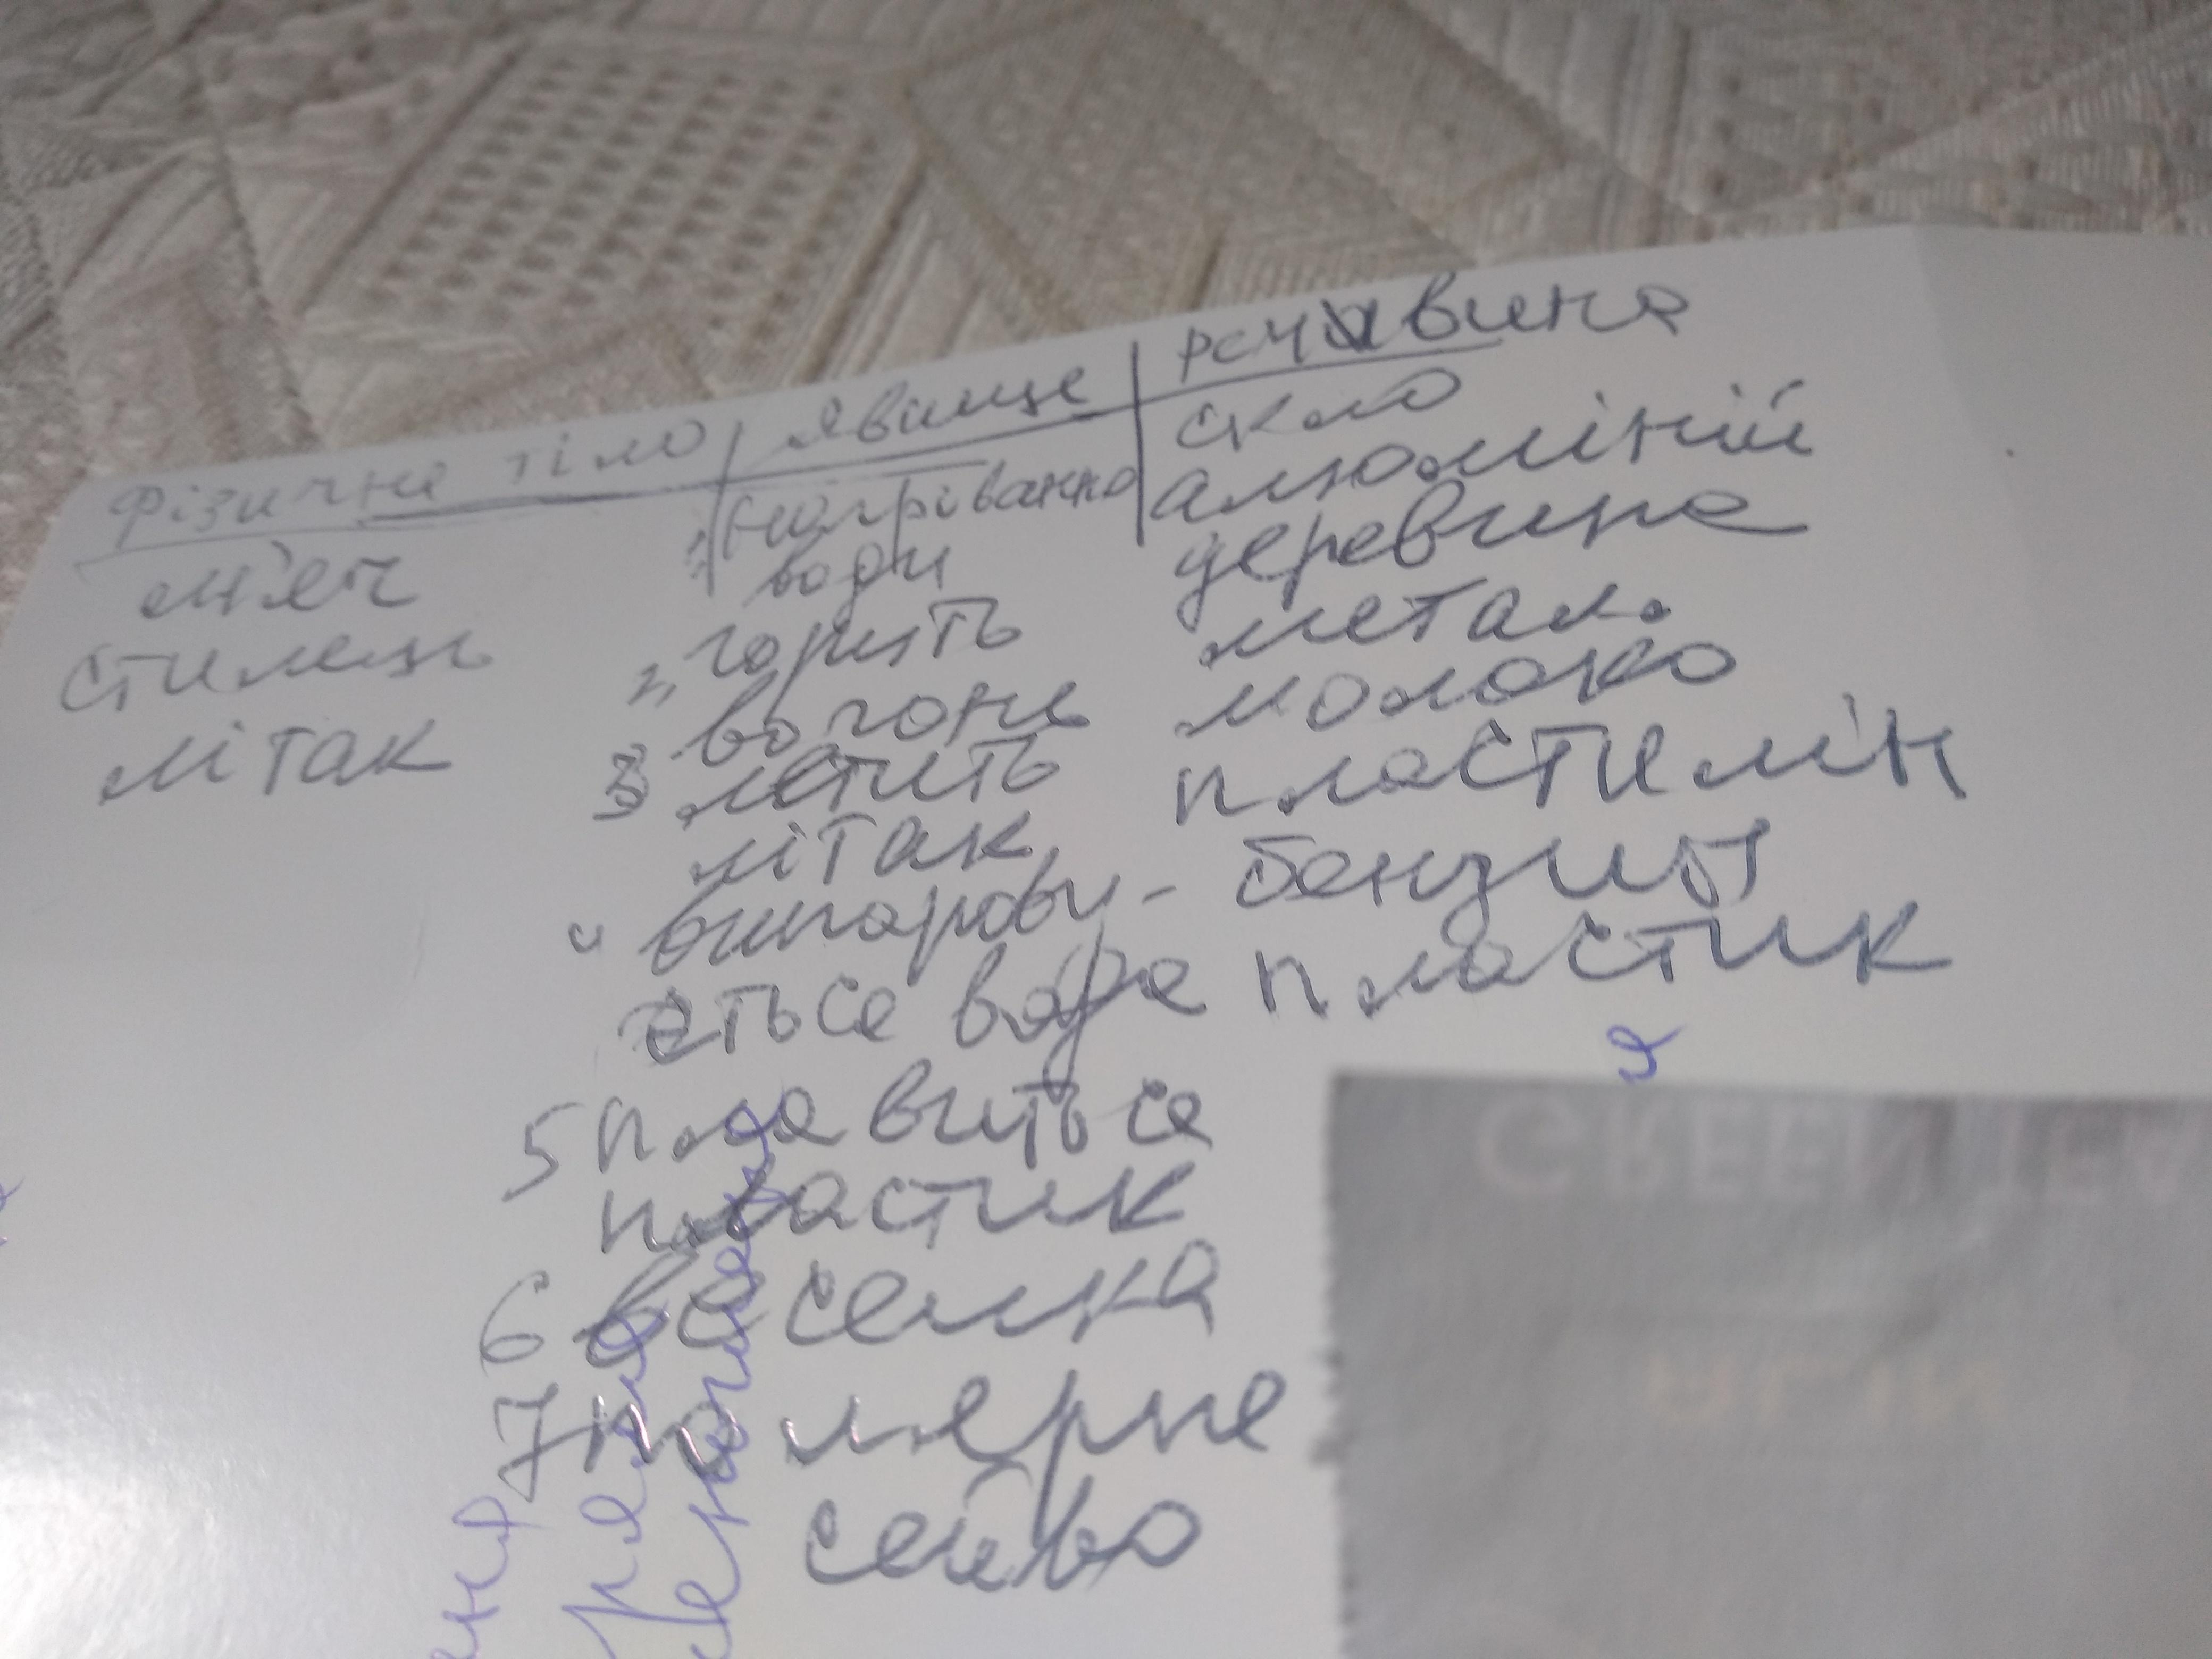 Фізичне тіло явище речовина
м'яч
стилець
літак
нагрівання
води
2, горить
вогонь
3 летить
літак
4 випарову-
ється вода
5 плавиться
пластик
6 веселка
7 полярне
сяйво
скло
алюміній
деревина
метал.
молоко
пластилін
бензин
пластик
я
GREEN TEA